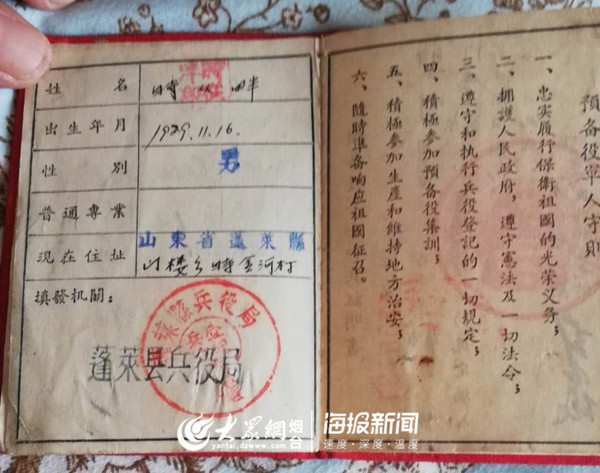 姓名
出生年月 1929.11.16.
性别 男
普通專業
現在住址 山東省蓬萊縣
村
填發机關：
縣兵役局
兵役
蓬萊县兵役局
預备役軍人守則
一、忠实履行保衛祖國的光荣义务；
二、拥護人民政府，遵守憲法及一切法令；
三、遵守和执行兵役登記的一切規定；
四、積極參加預备役集訓；
五、積極參加生產和維持地方治安；
六、隨時準备响应祖國征召。
大众網 烟台
yantai.dzwww.com
海报新闻
速度·深度·温度